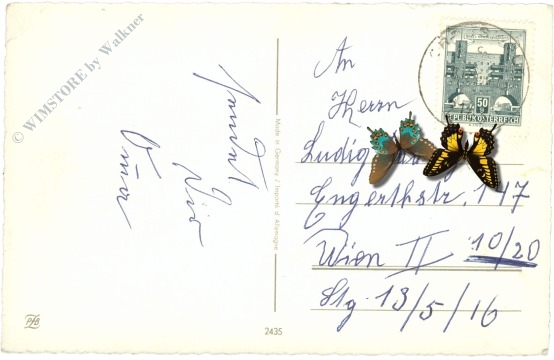 An
Herrn
Ludig
Engerthstr. 117
Wien II 10/20
Stg. 13/5/16
sendet
Dir
© WIMSTORE by Walkner
Made in Germany / Importé d'Allemagne
50 g
REPUBLIK ÖSTERREICH
PfB
2435